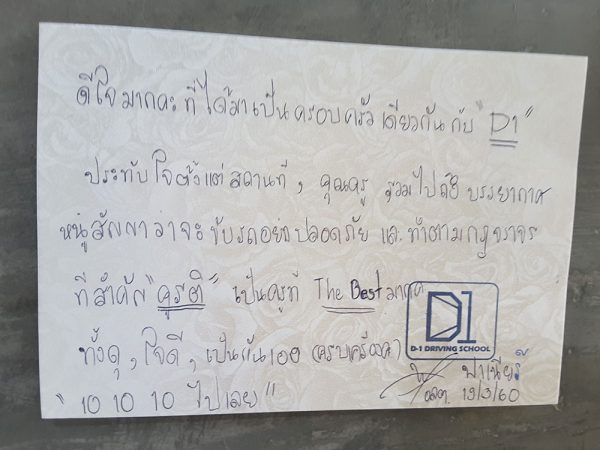 ดีใจมากคะ ที่ได้มาเป็นครอบครัวเดียวกันกับ "D1"
ประทับใจตั้งแต่ สถานที่, คุณครู รวมไปถึงบรรยากาศ
หนูสัญญาว่าจะขับรถอย่างปลอดภัย และทำตามกฎจราจร
ที่สำคัญ "ครูรติ" เป็นครูที่ The Best มากค่ะ
ทั้งดุ, ใจดี, เป็นกันเอง (ครบเครื่อง)
"10 10 10 ไปเลย"
D1
D-1 DRIVING SCHOOL
19/3/60